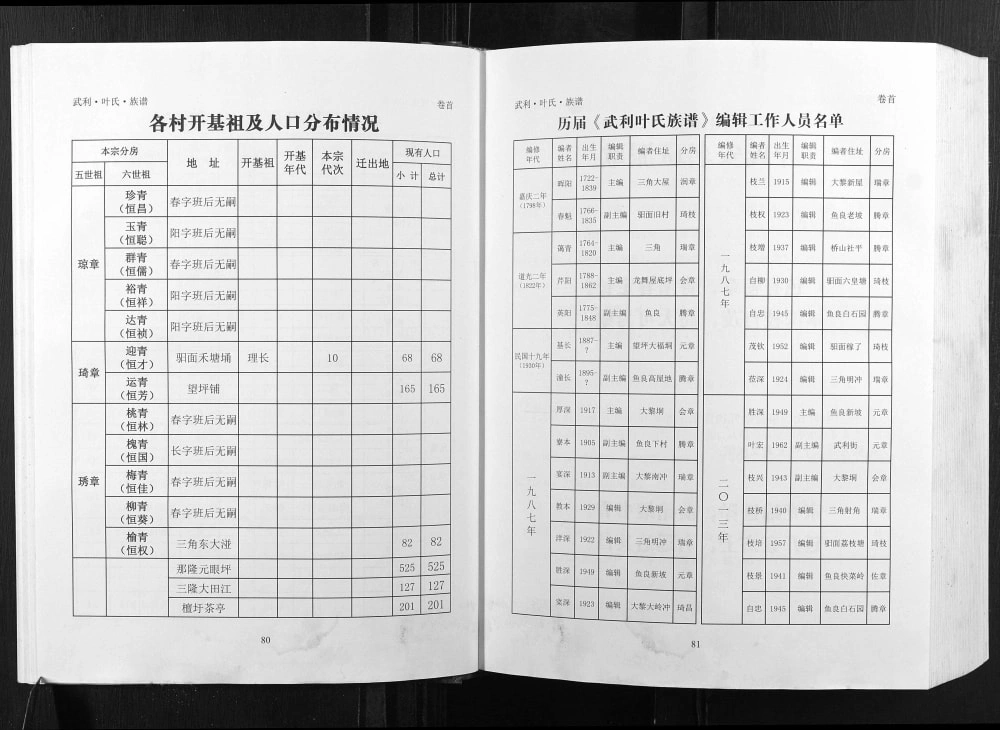 武利·叶氏·族谱 卷首
各村开基祖及人口分布情况
本宗分房 地 址 开基祖 开基年代 本宗代次 迁出地 现有人口
五世祖 六世祖 小 计 总计
琼章 珍青(恒昌) 春字班后无嗣
玉青(恒聪) 阳字班后无嗣
群青(恒儒) 春字班后无嗣
裕青(恒祥) 阳字班后无嗣
达青(恒祯) 阳字班后无嗣
琦章 迎青(恒才) 驲面禾塘埇 理长 10 68 68
运青(恒芳) 望坪铺 165 165
琇章 桃青(恒林) 春字班后无嗣
槐青(恒国) 长字班后无嗣
梅青(恒佳) 春字班后无嗣
柳青(恒葵) 春字班后无嗣
榆青(恒权) 三角东大湴 82 82
那隆元眼坪 525 525
三隆大田江 127 127
檀圩茶亭 201 201
80
武利·叶氏·族谱 卷首
历届《武利叶氏族谱》编辑工作人员名单
编修年代 编者姓名 出生年月 编辑职责 编者住址 分房
嘉庆二年(1798年) 晖阳 1722-1839 主编 三角大屋 润章
春魁 1766-1835 副主编 驲面旧村 琦枝
道光二年(1822年) 蔼青 1764-1820 主编 三角 瑞章
芹阳 1788-1862 主编 龙舞屋底坪 会章
英阳 1775-1848 副主编 鱼良 腾章
民国十九年(1930年) 基长 1887-? 主编 望坪大福垌 元章
潘长 1895-? 副主编 鱼良高屋地 腾章
一九八七年 厚深 1917 主编 大黎垌 会章
寮本 1905 副主编 鱼良下村 腾章
宴深 1913 副主编 大黎南冲 瑞章
教本 1929 编辑 大黎垌 会章
洋深 1922 编辑 三角明冲 瑞章
胜深 1949 编辑 鱼良新坡 元章
栾深 1923 编辑 大黎大岭冲 琦昌
编修年代 编者姓名 出生年月 编辑职责 编者住址 分房
一九八七年 枝兰 1915 编辑 大黎新屋 瑞章
枝权 1923 编辑 鱼良老坡 腾章
枝增 1937 编辑 桥山社平 腾章
自柳 1930 编辑 驲面六皇塘 琦枝
自忠 1945 编辑 鱼良白石园 腾章
茂钦 1952 编辑 驲面稼了 琦枝
莅深 1924 编辑 三角明冲 瑞章
二〇一三年 胜深 1949 主编 鱼良新坡 元章
叶宏 1962 副主编 武利街 元章
枝兴 1943 副主编 大黎垌 会章
枝桥 1940 编辑 三角射角 瑞章
枝培 1957 编辑 驲面荔枝塘 琦枝
枝景 1941 编辑 鱼良快菜岭 佐章
自忠 1945 编辑 鱼良白石园 腾章
81